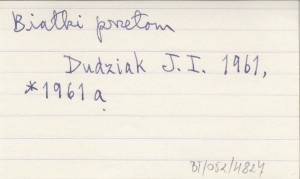 Białki przełom
Dudziak J. I. 1961,
*1961a
BT/052/4827